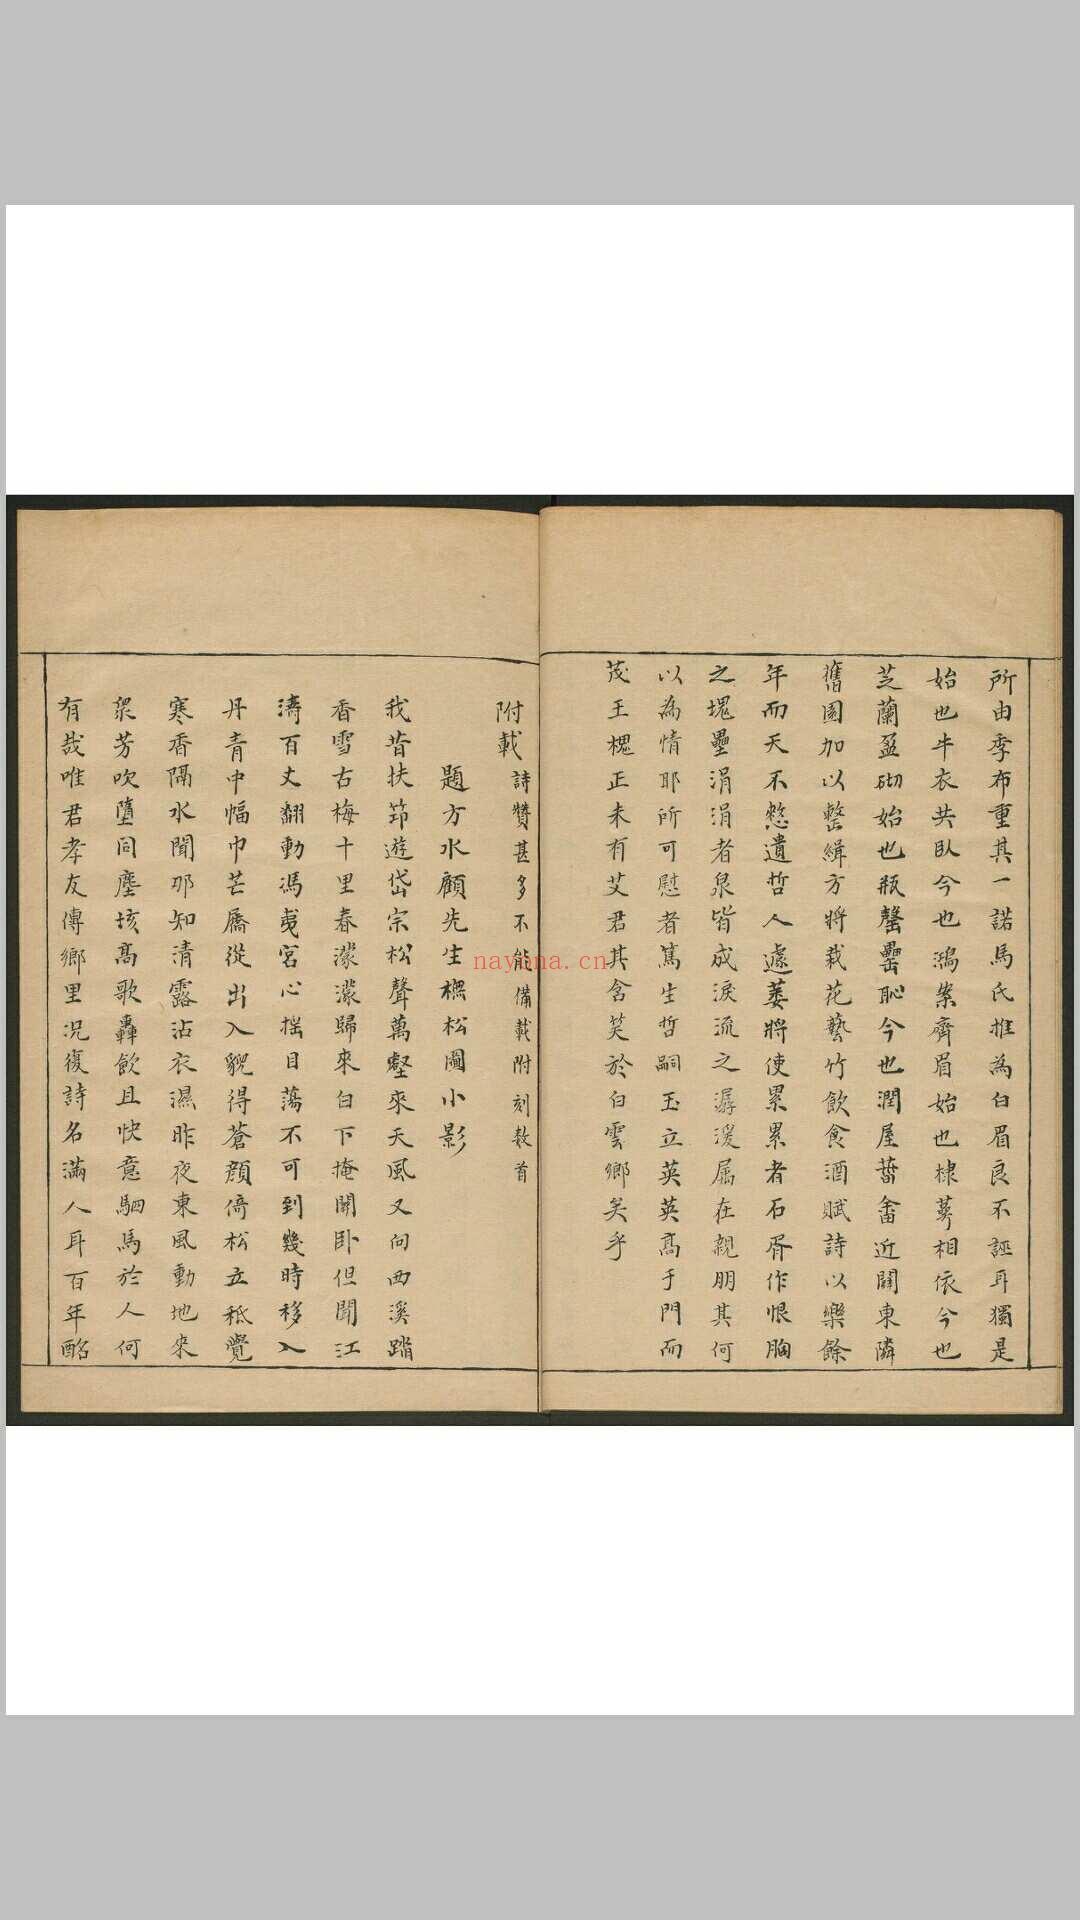 所由季布重其一諾馬氏推為白眉良不誣耳獨是
始也牛衣共臥今也鴻案齊眉始也棣萼相依今也
芝蘭盈砌始也瓶罄罍恥今也潤屋菑畬近闢東隣
舊園加以整緝方將栽花藝竹飲食酒賦詩以樂餘
年而天不憗遺哲人遽萎將使累累者石胥作恨胸
之塊壘涓涓者泉皆成淚流之潺湲属在親朋其何
以為情耶所可慰者篤生哲嗣玉立英英高于門而
茂王槐正未有艾君其含笑於白雲鄉矣乎
附載詩贊甚多不能備載附刻数首
題方水顧先生橅松圖小影
我昔扶筇遊岱宗松聲萬壑來天風又向西溪踏
香雪古梅十里春濛濛歸來白下掩關卧但聞江
濤百丈翻動馮夷宮心摇目蕩不可到幾時移入
丹青中幅巾芒屩從出入貌得蒼顏倚松立秪覺
寒香隔水聞那知清露沾衣濕昨夜東風動地來
眾芳吹墮同塵垓高歌轟飲且快意駟馬於人何
有哉唯君孝友傳鄉里况復詩名滿人耳百年酩
nayona.cn